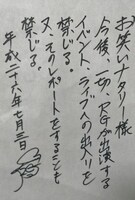 お笑いナタリー様
今後、一切、RGが出演する
イベント、ライブへの出入りを
禁じる。
又、そのレポートをすることも
禁じる。
平成二十六年七月三日